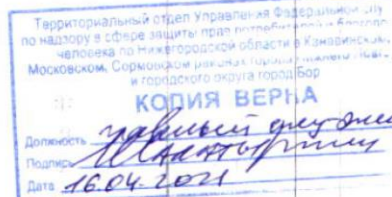 Территориальный отдел Управления Федеральной
по надзору в сфере защиты прав
человека по Нижегородской области в Канавинском,
Московском, Сормовском районах города
и городского округа город Бор
КОПИЯ ВЕРНА
Должность
Подпись
Дата 16.04.2021